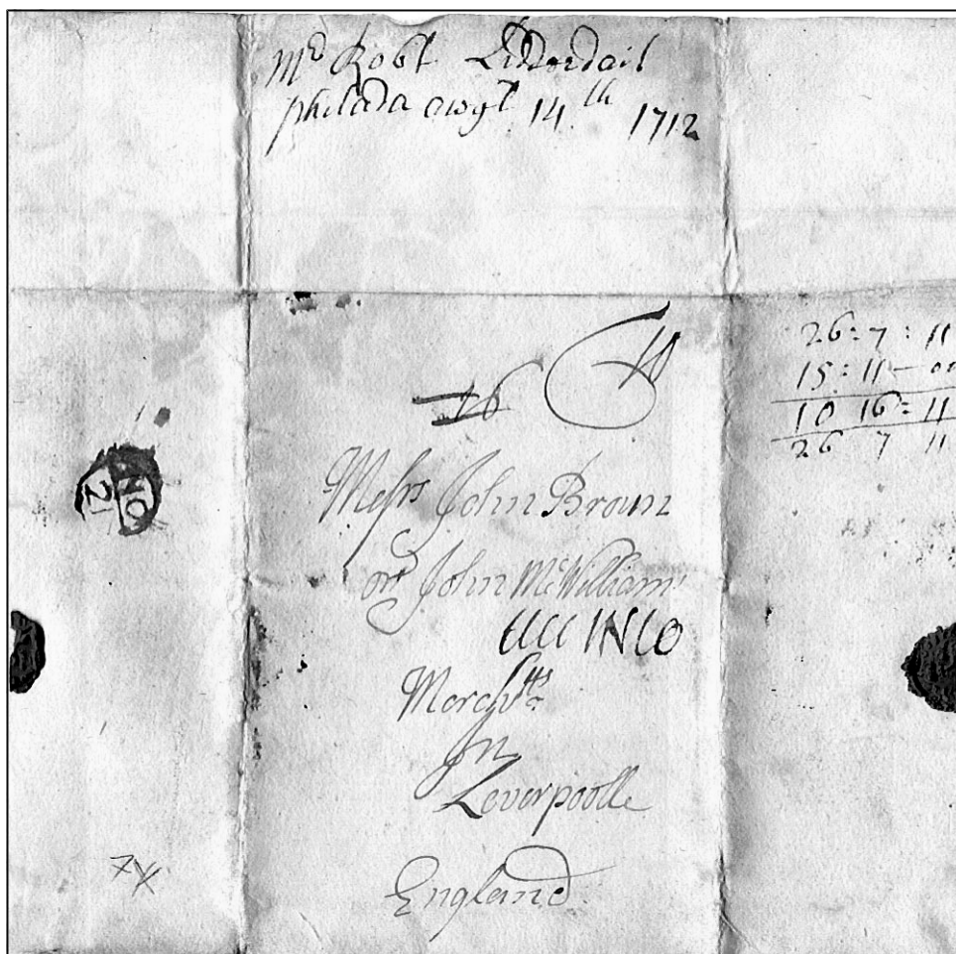 Mr Robt Lidderdail
philada awgt 14th 1712
26 : 7 : 11
15 : 11 –
10 16 : 11
26 7 11
16
NO
2
Messrs John Brown
or John McWilliam
Merchts
In
Leverpoolle
England